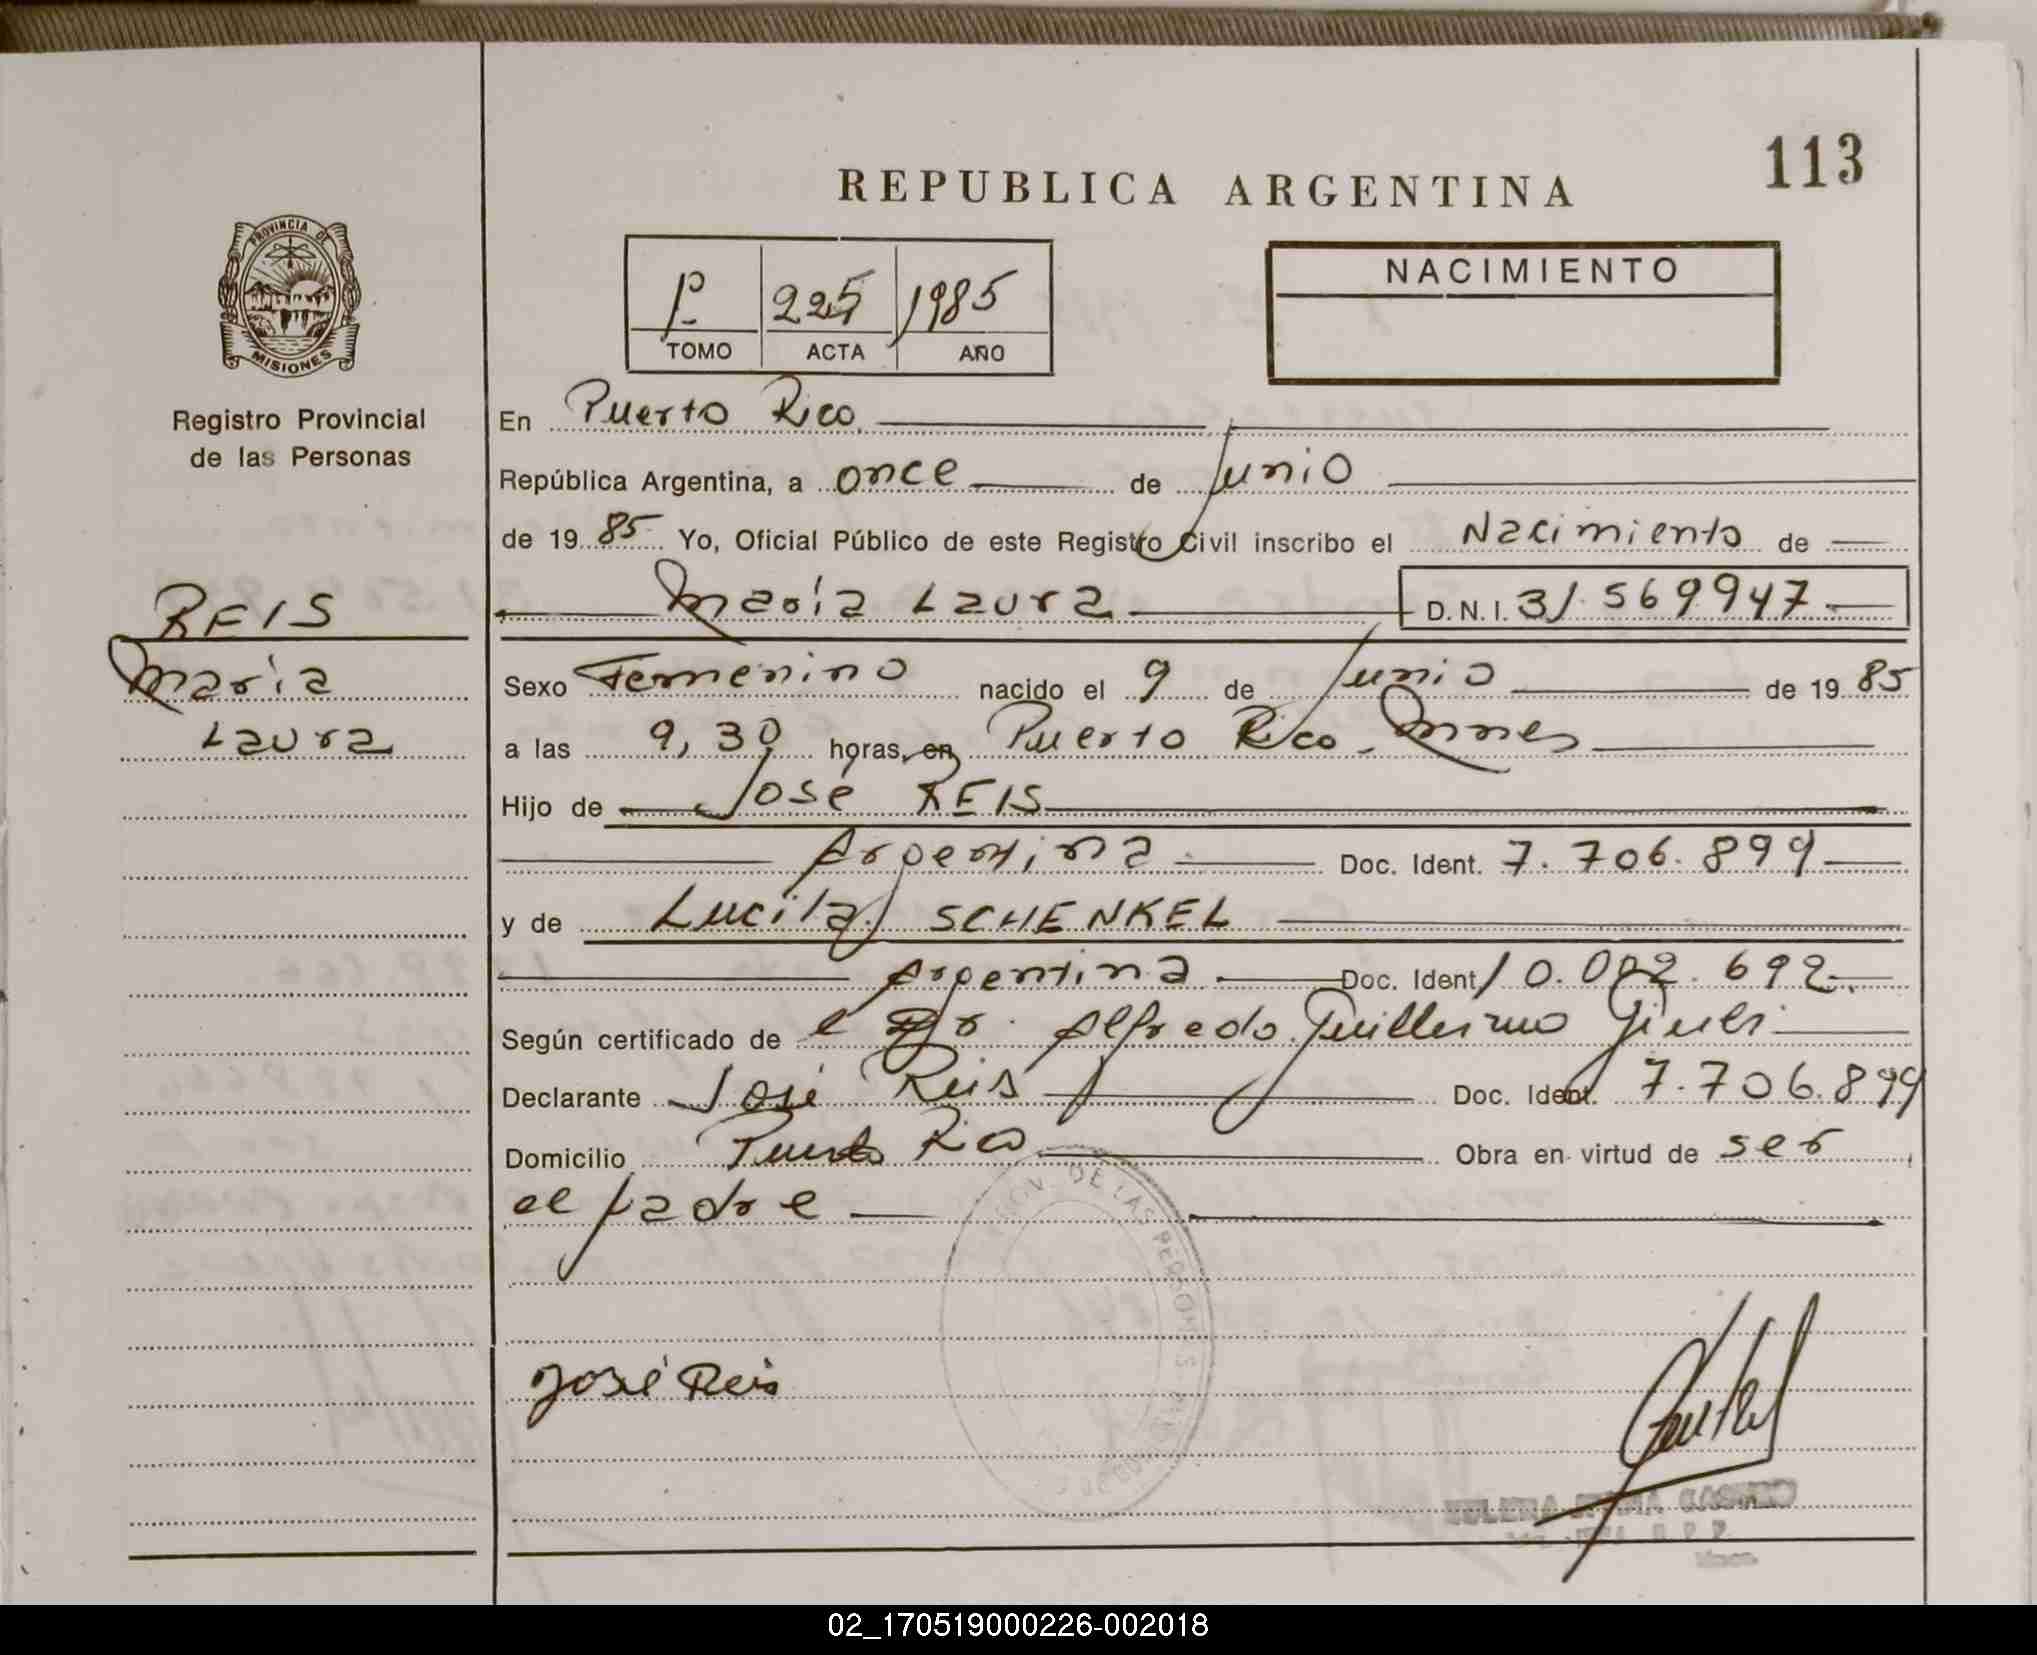 113
REPUBLICA ARGENTINA
PROVINCIA DE
MISIONES
Registro Provincial
de las Personas
REIS
María
Laura
225 1985
TOMO ACTA AÑO
NACIMIENTO
En Puerto Rico
República Argentina, a once de Junio
de 1985 Yo, Oficial Público de este Registro Civil inscribo el Nacimiento de
María Laura D.N.I. 31.569947
Sexo Femenino nacido el 9 de Junio de 1985
a las 9,30 horas, en Puerto Rico. Mnes
Hijo de José REIS
Argentina Doc. Ident. 7.706.899
y de Lucila SCHENKEL
Argentina Doc. Ident 10.092.692
Según certificado de el Dr. Alfredo Guillermo
Declarante José Reis Doc. Ident. 7.706.899
Domicilio Puerto Rico Obra en virtud de ser
el padre
DE LAS PERSONAS
José Reis
02_170519000226-002018